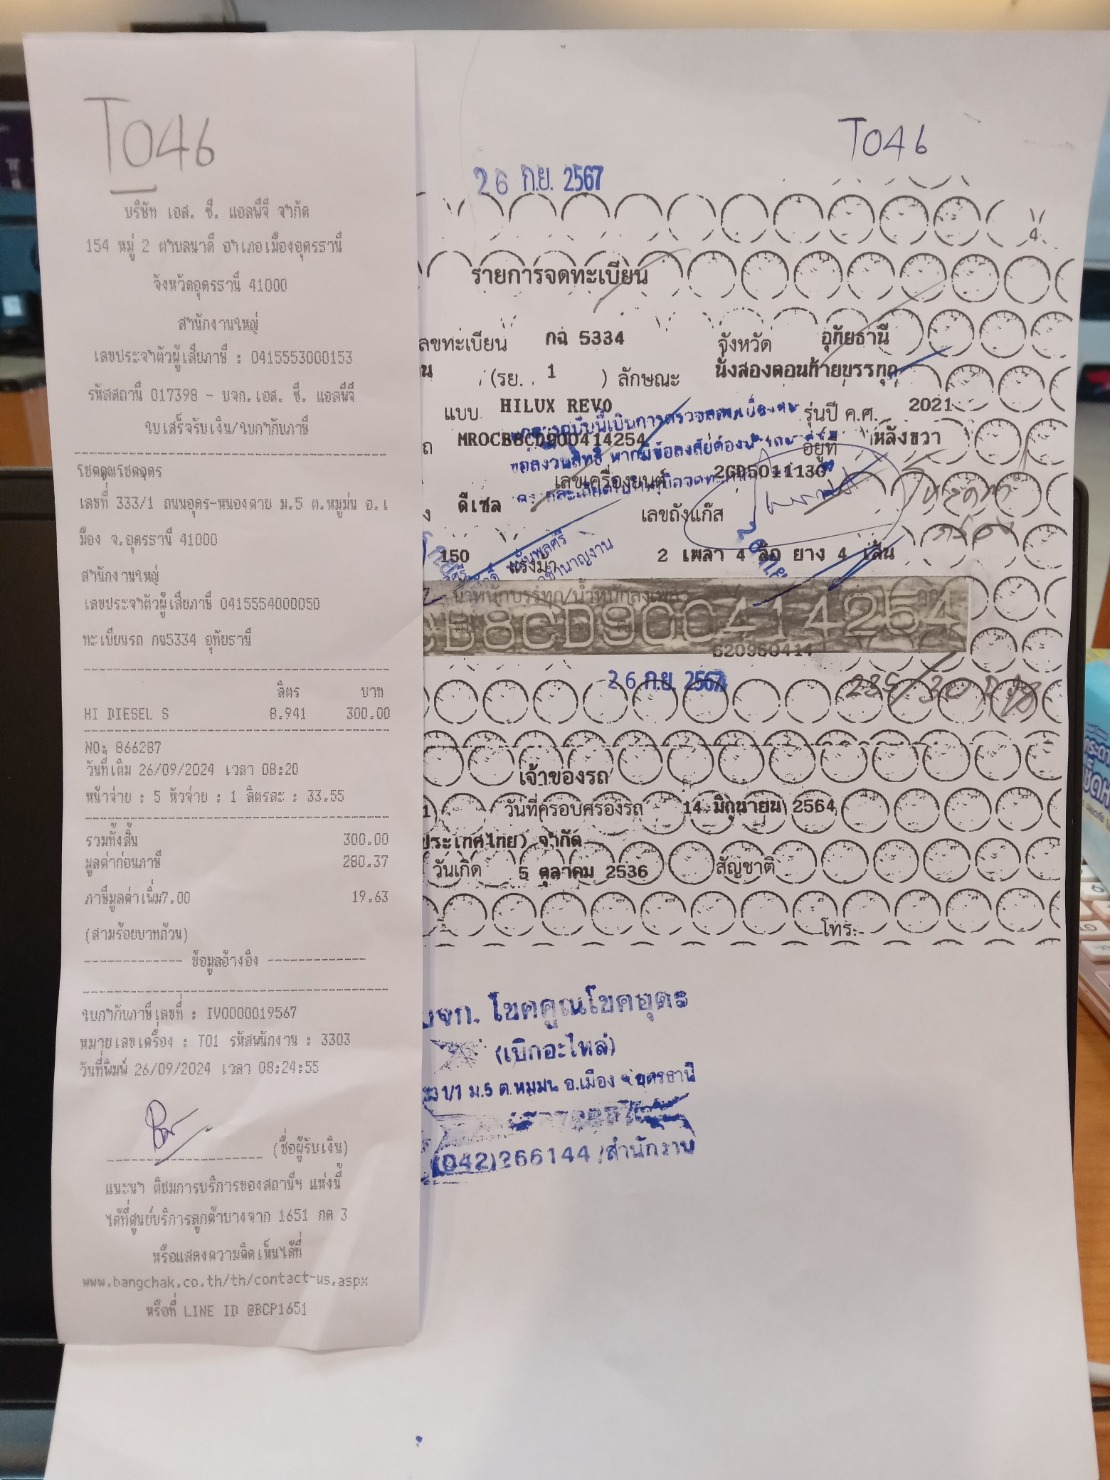 T046
บริษัท เอส. ซี. แอลพีจี จำกัด
154 หมู่ 2 ตำบลนาดี อำเภอเมืองอุดรธานี
จังหวัดอุดรธานี 41000
สำนักงานใหญ่
เลขประจำตัวผู้เสียภาษี : 0415553000153
รหัสสถานี 017398 - บจก.เอส. ซี. แอลพีจี
ใบเสร็จรับเงิน/ใบกำกับภาษี
โชคคูณโชคอุดร
เลขที่ 333/1 ถนนอุดร-หนองคาย ม.5 ต.หมูม่น อ.เ
มือง จ.อุดรธานี 41000
สำนักงานใหญ่
เลขประจำตัวผู้เสียภาษี 0415554000050
ทะเบียนรถ กฉ5334 อุทัยธานี
ลิตร บาท
HI DIESEL S 8.941 300.00
NO: 866287
วันที่เติม 26/09/2024 เวลา 08:20
หน้าจ่าย : 5 หัวจ่าย : 1 ลิตรละ : 33.55
รวมทั้งสิ้น 300.00
มูลค่าก่อนภาษี 280.37
ภาษีมูลค่าเพิ่ม7.00 19.63
(สามร้อยบาทถ้วน)
ข้อมูลอ้างอิง
ใบกำกับภาษีเลขที่ : IV0000019567
หมายเลขเครื่อง : T01 รหัสพนักงาน : 3303
วันที่พิมพ์ 26/09/2024 เวลา 08:24:55
(ชื่อผู้รับเงิน)
แนะนำ ติชมการบริการของสถานีฯ แห่งนี้
ได้ที่ศูนย์บริการลูกค้าบางจาก 1651 กด 3
หรือแสดงความคิดเห็นได้ที่
www.bangchak.co.th/th/contact-us.aspx
หรือที่ LINE ID @BCP1651
T046
26 ก.ย. 2567
4
รายการจดทะเบียน
ลขทะเบียน กฉ 5334 จังหวัด อุทัยธานี
น (รย. 1 ) ลักษณะ นั่งสองตอนท้ายบรรทุก
แบบ HILUX REVO รุ่นปี ค.ศ. 2021
MR0CB8CD900414254 อยู่ที่ หลังขวา
เลขเครื่องยนต์ 2GD5011130
ดีเซล เลขถังแก๊ส
150 แรงม้า 2 เพลา 4 ล้อ ยาง 4 เส้น
CB8CD900414254
26 ก.ย 2567
เจ้าของรถ
1) วันที่ครอบครองรถ 14 มิถุนายน 2564
ประเทศไทย) จำกัด
วันเกิด 5 ตุลาคม 2536 สัญชาติ
โทร.
บจก. โชคคูณโชคอุดร
(เบิกอะไหล่)
1/1 ม.5 ต.หมูม่น อ.เมือง จ.อุดรธานี
(042)266144 /สำนักงาน